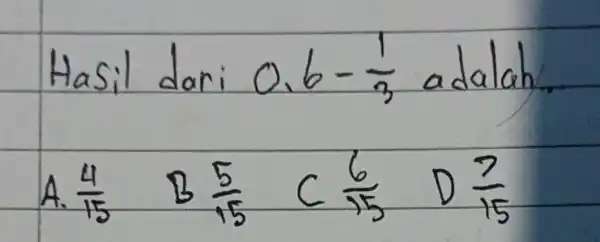 Hasil dari 0,6 - 1/3 adalah...
A. 4/15 B 5/15 C 6/15 D 7/15